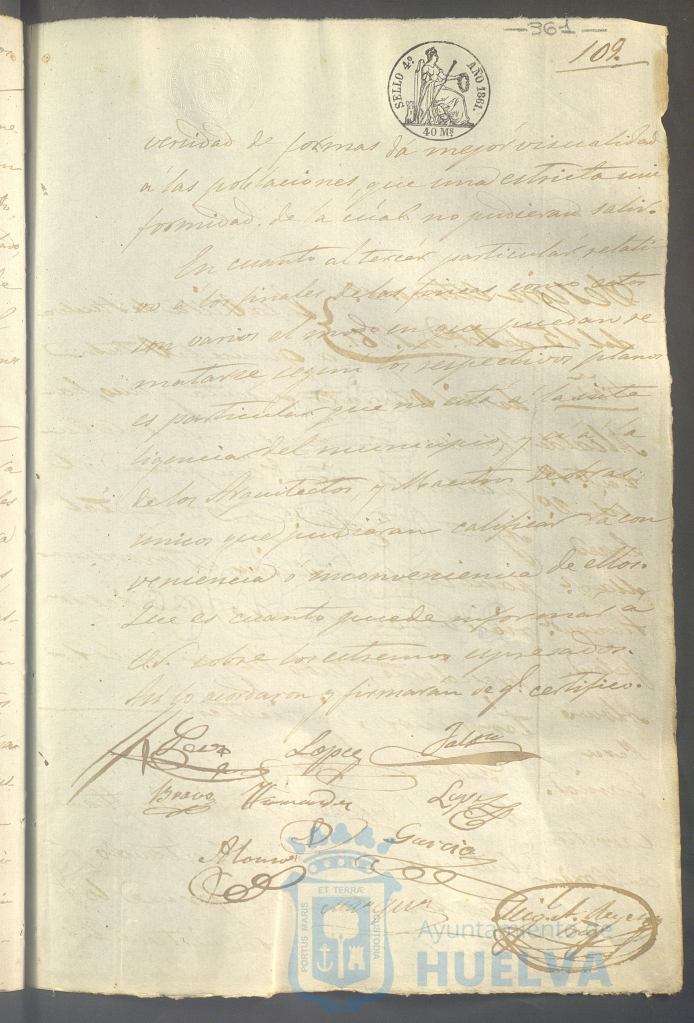 —361—
109.
SELLO 4º AÑO 1861.
40 Mˢ
versidad de formas dá mejor visualidad
á las poblaciones, que una estricta uni
formidad, de la cual no pudieran salir.
En cuanto al tercér particular relati
vo á los finales de las fincas como estos
son varios el modo en que puedan re
matarse segun los respectivos planos
es particular que no está á la inte
ligencia del municipio, y si á la
de los Arquitectos, y Maestros
unicos que pudieran calificar la con
veniencia ó inconveniencia de ellos.
Que es cuanto puede informar á
U.S. sobre los estremos espresados.
Asi lo acordaron y firmarán de q.ᵉ certifico.
Lopez
Bravo Hernandez Lopez
Alonso D Garcia
PORTUS MARIS ET TERRÆ CUSTODIA
Ayuntamiento de
HUELVA